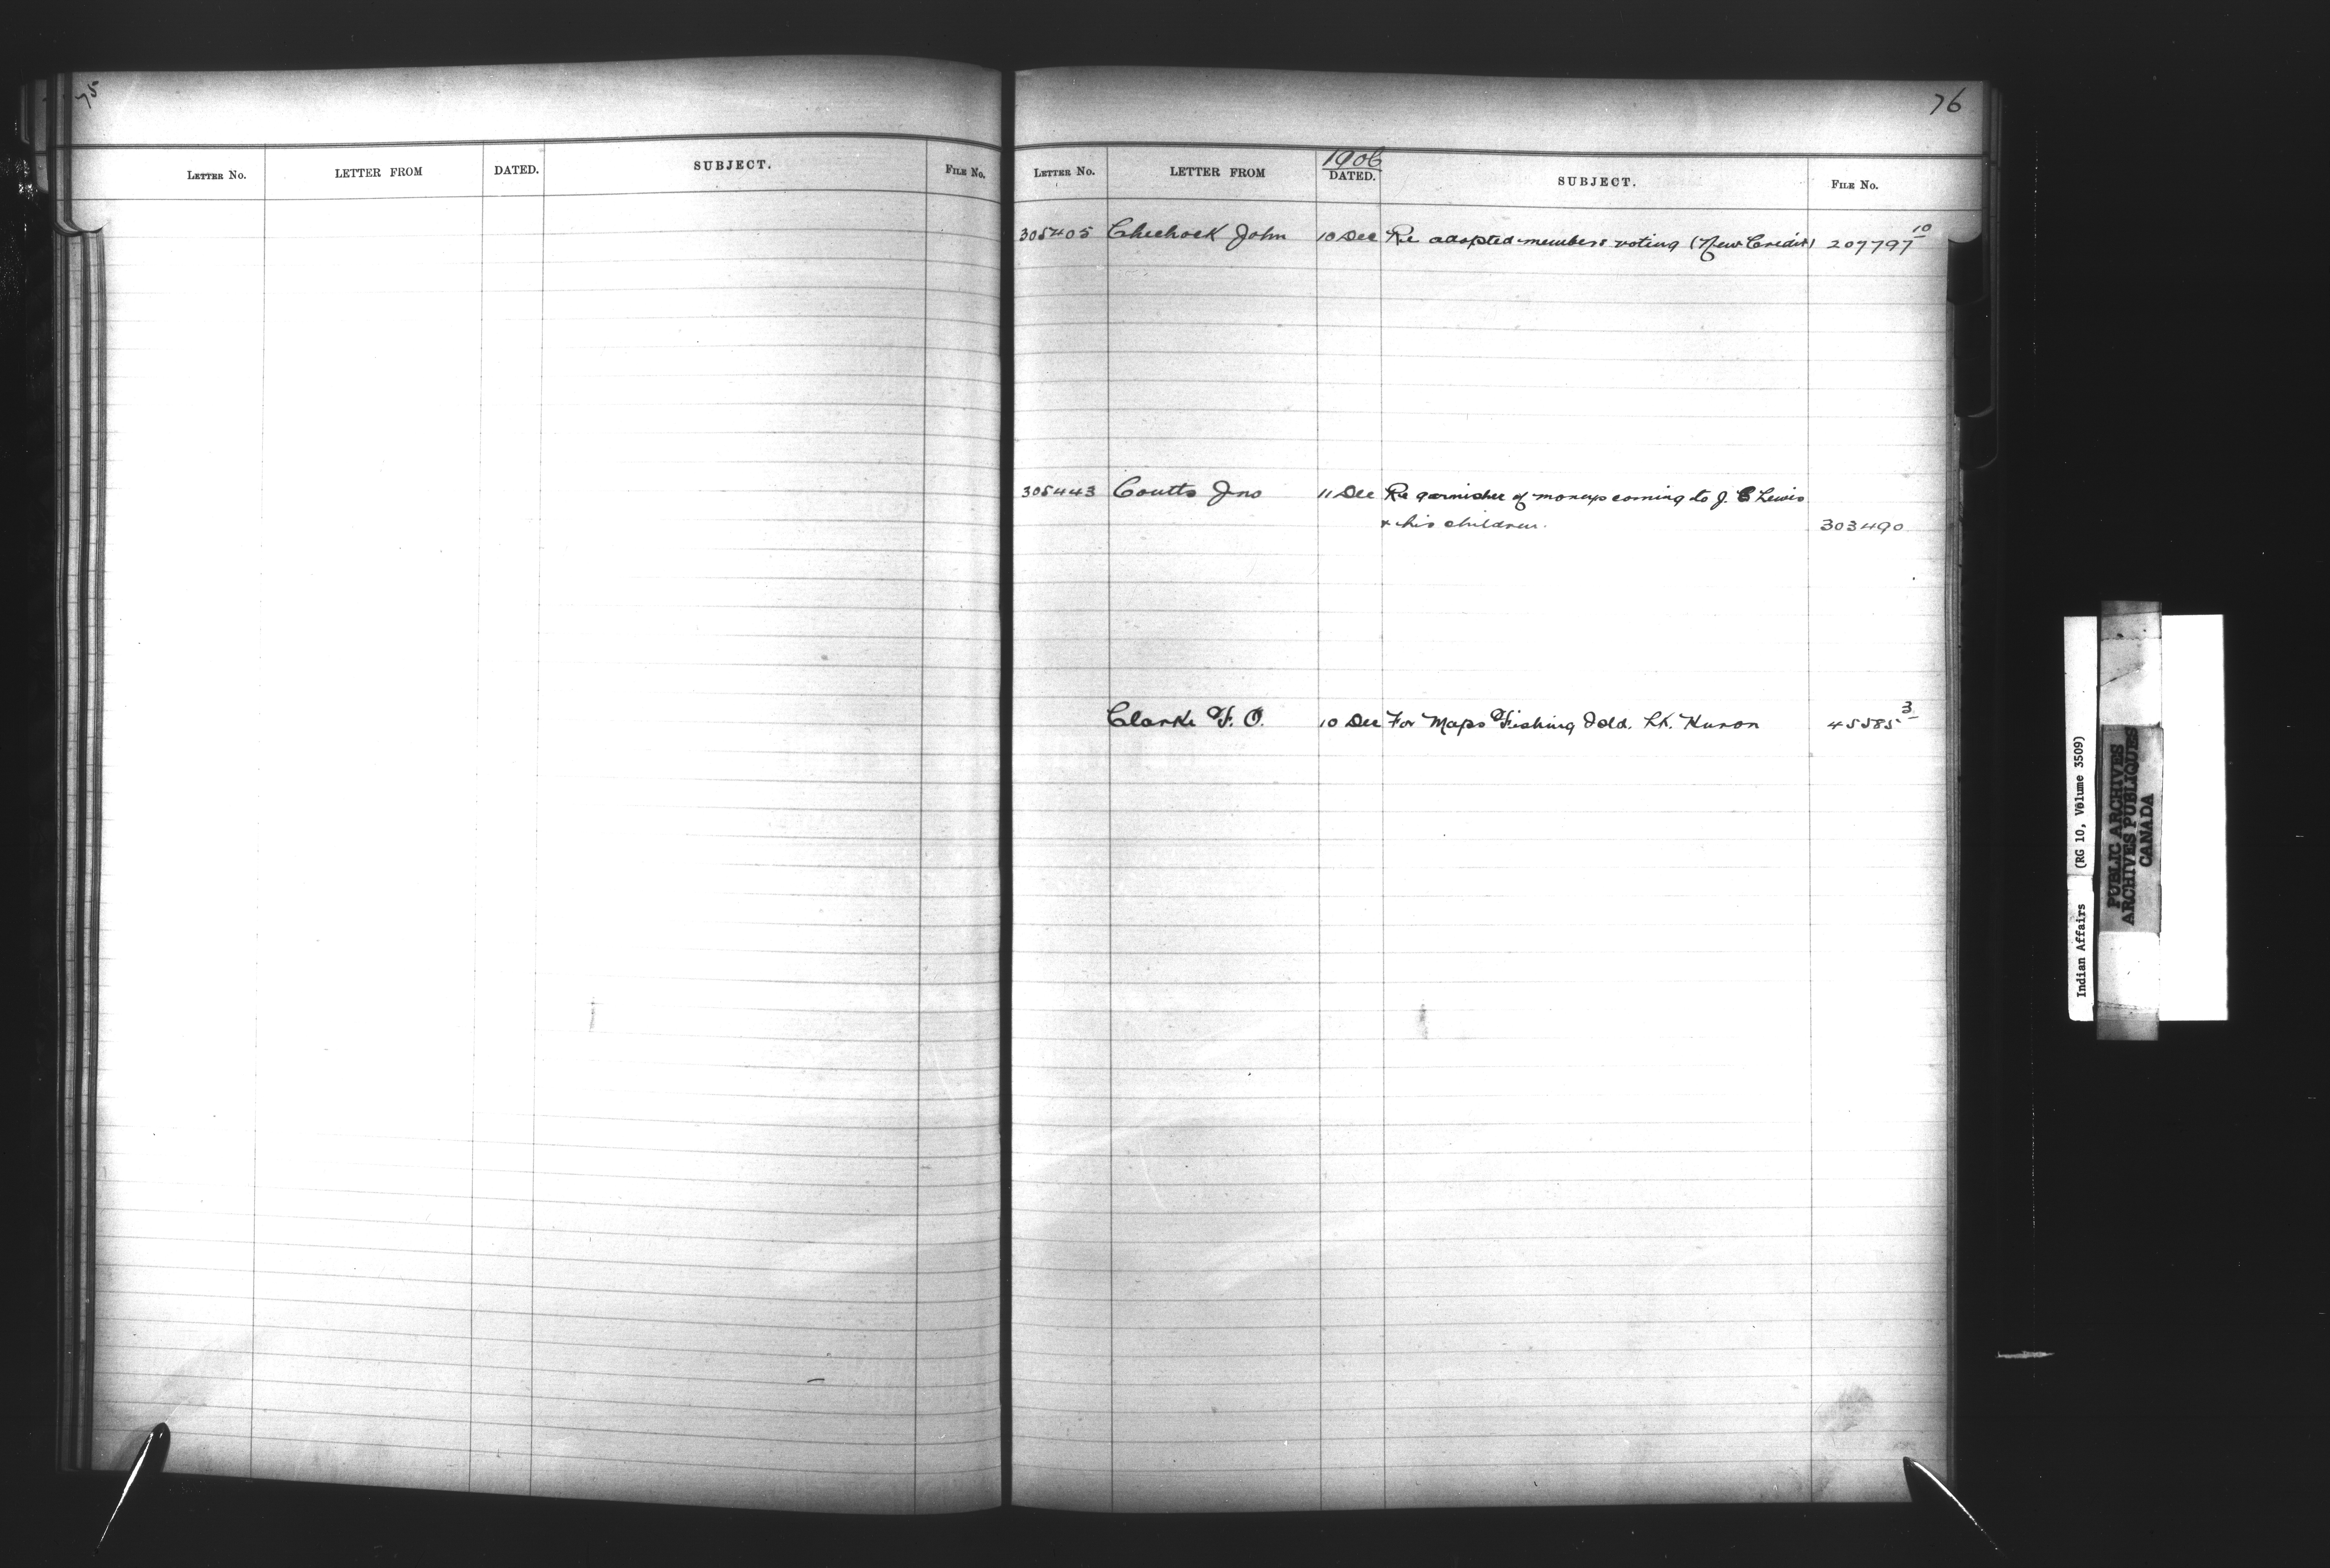 75
LETTER No. LETTER FROM DATED. SUBJECT. FILE No.
76
1906
LETTER No. LETTER FROM DATED. SUBJECT. FILE No.
305405 Chechock John 10 Dec Re adopted members voting (New Credit) 207797 10
305443 Coutts Jno 11 Dec Re garnishee of moneys coming to J. C Lewis
& his children. 303490
Clarke F. O. 10 Dec For Maps Fishing Isld. Lk. Huron 45585 3
Indian Affairs (RG 10, Volume 3509)
PUBLIC ARCHIVES
ARCHIVES PUBLIQUES
CANADA